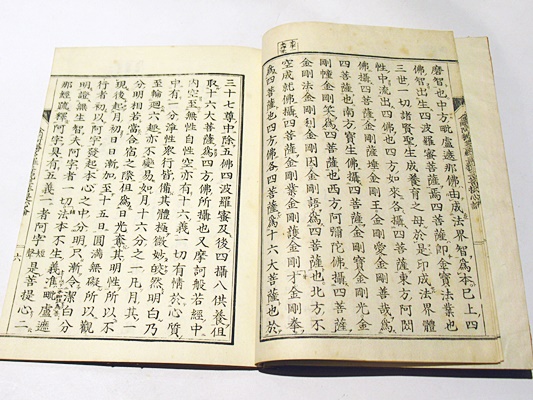 磨智也中方毗盧遮那佛由成法界智爲本已上四
佛智出生四波羅蜜菩薩焉四菩薩卽金寶法業也
三世一切諸賢聖生成養育之母於是印成法界體
性中流出四佛也四方如來各攝四菩薩東方阿閦
佛攝四菩薩金剛薩埵金剛王金剛愛金剛善哉爲
四菩薩也南方寶生佛攝四菩薩金剛寶金剛光金
剛幢金剛笑爲四菩薩也西方阿彌陀佛攝四菩薩
金剛法金剛利金剛因金剛語爲四菩薩也北方不
空成就佛攝四菩薩金剛業金剛護金剛牙金剛拳
爲四菩薩也四方佛各四菩薩爲十六大菩薩也於
三十七尊中除五佛四波羅蜜及後四攝八供養但
取十六大菩薩爲四方佛所攝也又摩訶般若經中
內空至無性自性空亦有十六義一切有情於心質
中有一分淨性衆行皆備其體極微妙皎然明白乃
至輪迴六趣亦不變易如月十六分之一凡月其一
分明相若當合宿之際但爲日光奪其明性所以不
現後起月初日漸加至十五日圓滿無礙所以觀
行者初以阿字發起本心之中分明只漸令潔白分
明證無生智夫阿字者一切法本不生義準毗盧遮
那經疏釋阿字具有五義一者阿字短聲是菩提心二